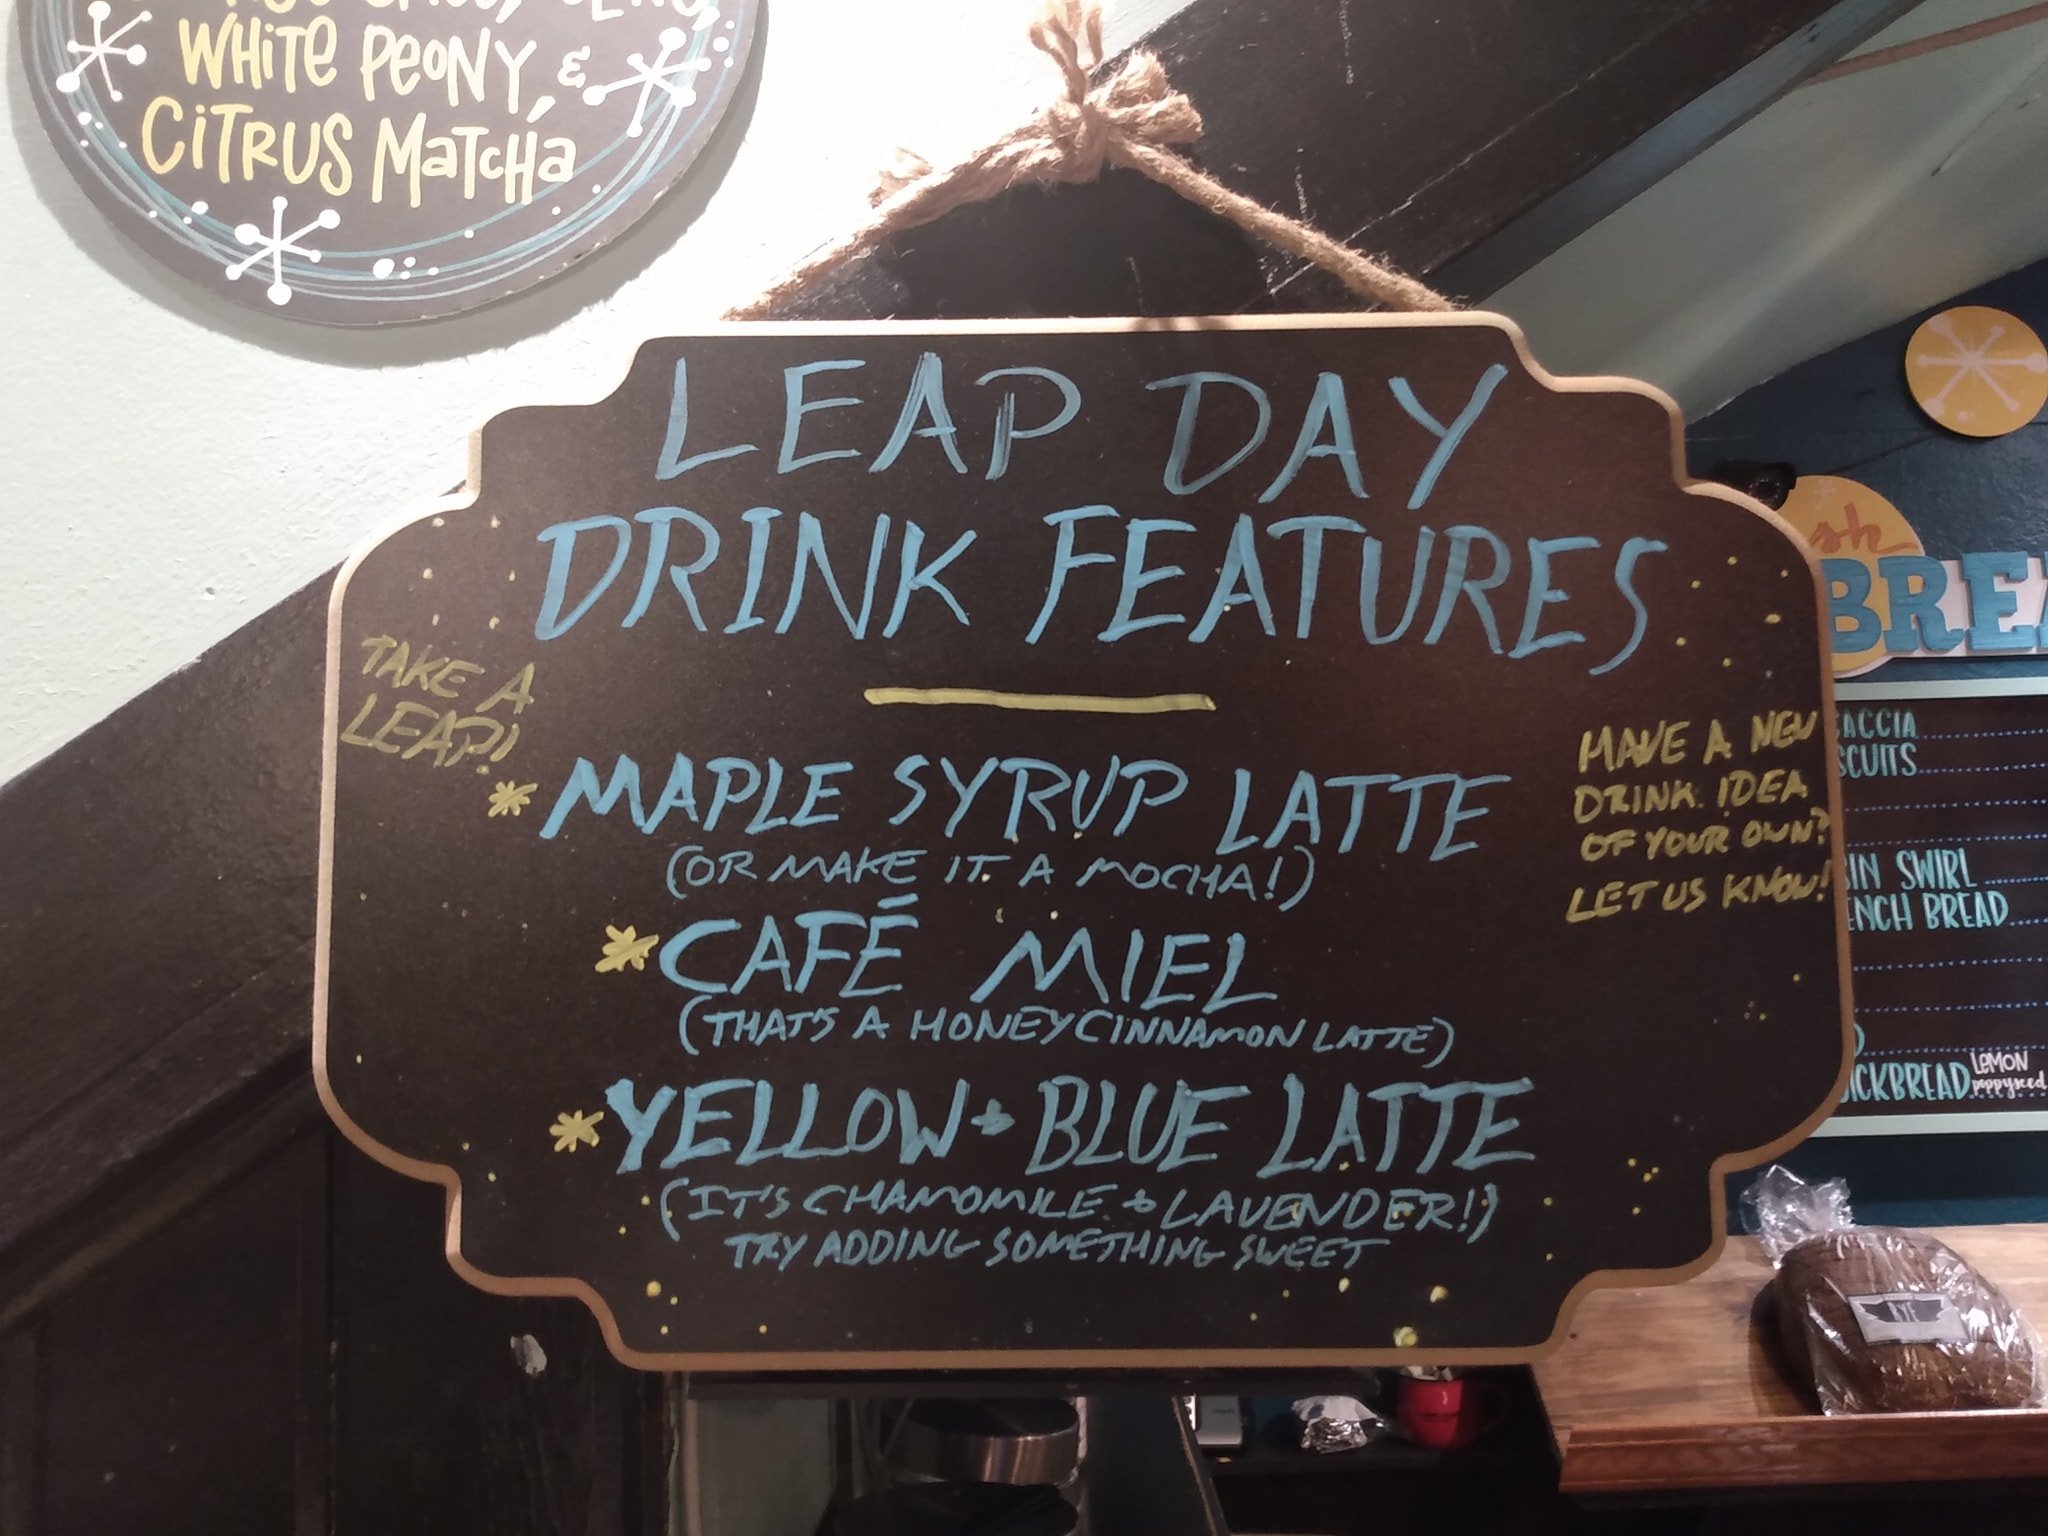 WHITE PEONY, &
CITRUS MATCHA
LEAP DAY
DRINK FEATURES
TAKE A
LEAP!
* MAPLE SYRUP LATTE
(OR MAKE IT A MOCHA!)
* CAFÉ MIEL
(THAT'S A HONEY CINNAMON LATTE)
* YELLOW + BLUE LATTE
(IT'S CHAMOMILE + LAVENDER!)
TRY ADDING SOMETHING SWEET
HAVE A NEW
DRINK IDEA
OF YOUR OWN?
LET US KNOW!
SWIRL
BREAD
LEMON
poppyseed
RYE